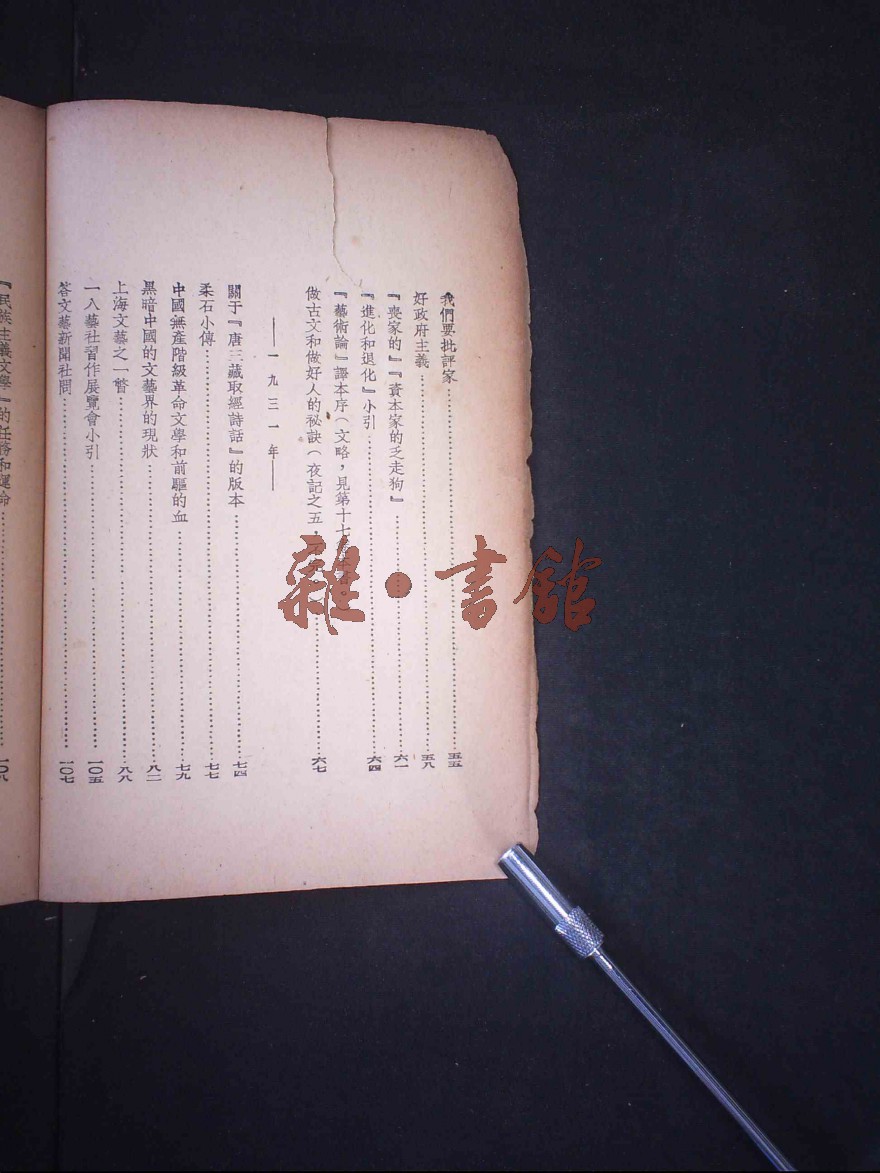 我們要批評家……五五
好政府主義……五八
『喪家的』『資本家的乏走狗』……六一
『進化和退化』小引……六四
『藝術論』譯本序（文略，見第十七
做古文和做好人的秘訣（夜記之五……六七
——一九三一年——
關于『唐三藏取經詩話』的版本……七四
柔石小傳……七七
中國無產階級革命文學和前驅的血……七九
黑暗中國的文藝界的現狀……八二
上海文藝之一瞥……八八
一八藝社習作展覽會小引……一〇五
答文藝新聞社問……一〇七
『民族主義文學』的任務和運命……一〇八
雜·書館